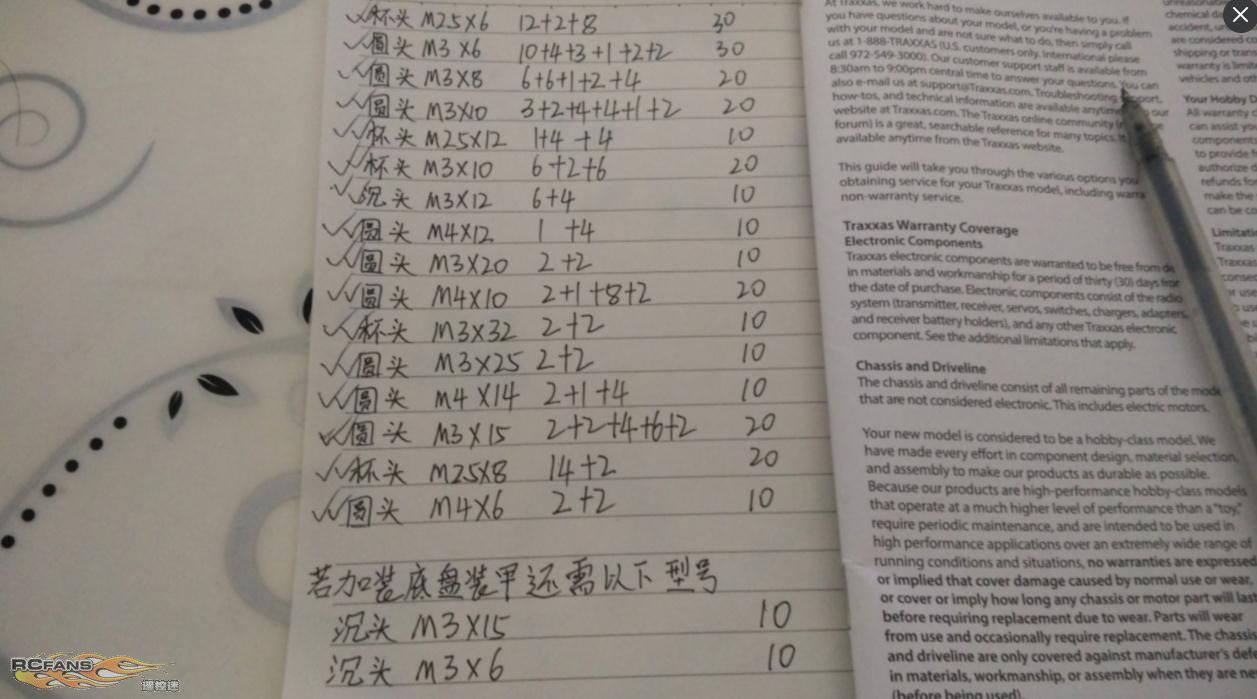 ✓杯头 M2.5X6 12+2+8 30
✓圆头 M3X6 10+4+3+1+2+2 30
✓圆头 M3X8 6+6+1+2+4 20
✓圆头 M3X10 3+2+4+4+1+2 20
✓杯头 M2.5X12 1+4+4 10
✓杯头 M3X10 6+2+6 20
✓沉头 M3X12 6+4 10
✓圆头 M4X12 1+4 10
✓圆头 M3X20 2+2 10
✓圆头 M4X10 2+1+8+2 20
✓杯头 M3X32 2+2 10
✓圆头 M3X25 2+2 10
✓圆头 M4X14 2+1+4 10
✓圆头 M3X15 2+2+4+6+2 20
✓杯头 M2.5X8 14+2 20
✓圆头 M4X6 2+2 10
若加装底盘装甲还需以下型号
沉头 M3X15 10
沉头 M3X6 10
At Traxxas, we work hard to make ourselves available to you. If
you have questions about your model, or you're having a problem
with your model and are not sure what to do, then simply call
us at 1-888-TRAXXAS (U.S. customers only. International please
call 972-549-3000). Our customer support staff is available from
8:30am to 9:00pm central time to answer your questions. You can
also e-mail us at support@Traxxas.com. Troubleshooting
how-tos, and technical information are available anytime our
website at Traxxas.com. The Traxxas online community
forum) is a great, searchable reference for many topics.
available anytime from the Traxxas website.
This guide will take you through the various options
obtaining service for your Traxxas model, including
non-warranty service.
Traxxas Warranty Coverage
Electronic Components
Traxxas electronic components are warranted to be free from
in materials and workmanship for a period of thirty (30) days from
the date of purchase. Electronic components consist of the radio
system (transmitter, receiver, servos, switches, chargers, adapters,
and receiver battery holders), and any other Traxxas electronic
component. See the additional limitations that apply.
Chassis and Driveline
The chassis and driveline consist of all remaining parts of the
that are not considered electronic. This includes electric motors.
Your new model is considered to be a hobby-class model. We
have made every effort in component design, material selection,
and assembly to make our products as durable as possible.
Because our products are high-performance hobby-class models
that operate at a much higher level of performance than a "toy,"
require periodic maintenance, and are intended to be used in
high performance applications over an extremely wide range of
running conditions and situations, no warranties are expressed
or implied that cover damage caused by normal use or wear,
or cover or imply how long any chassis or motor part will last
before requiring replacement due to wear. Parts will wear
from use and occasionally require replacement. The chassis
and driveline are only covered against manufacturer's
in materials, workmanship, or assembly when they are
(before being used).
chemical
accident,
are considered
shipping or
warranty is
vehicles and
Your Hobby
All warranty
can assist
components
to provide
authorize
refunds for
make the
can be
Traxxas
Traxxas
RCFANS
遥控迷